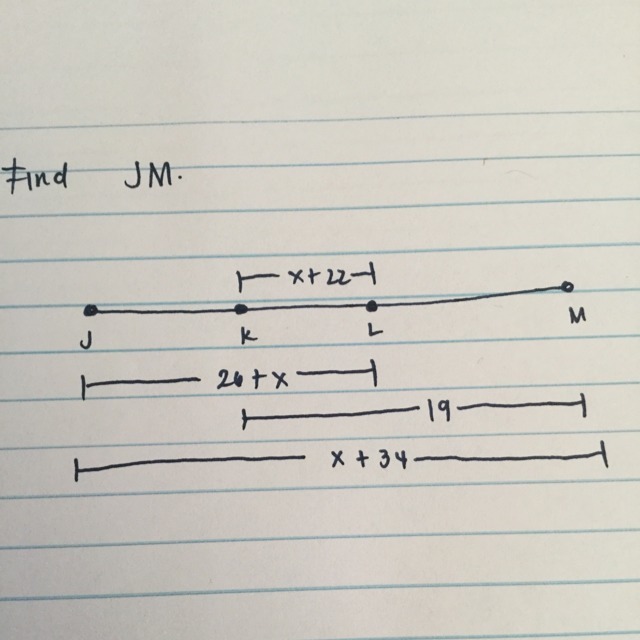 Find JM.
x+22
J K L M
26+x
19
x+34